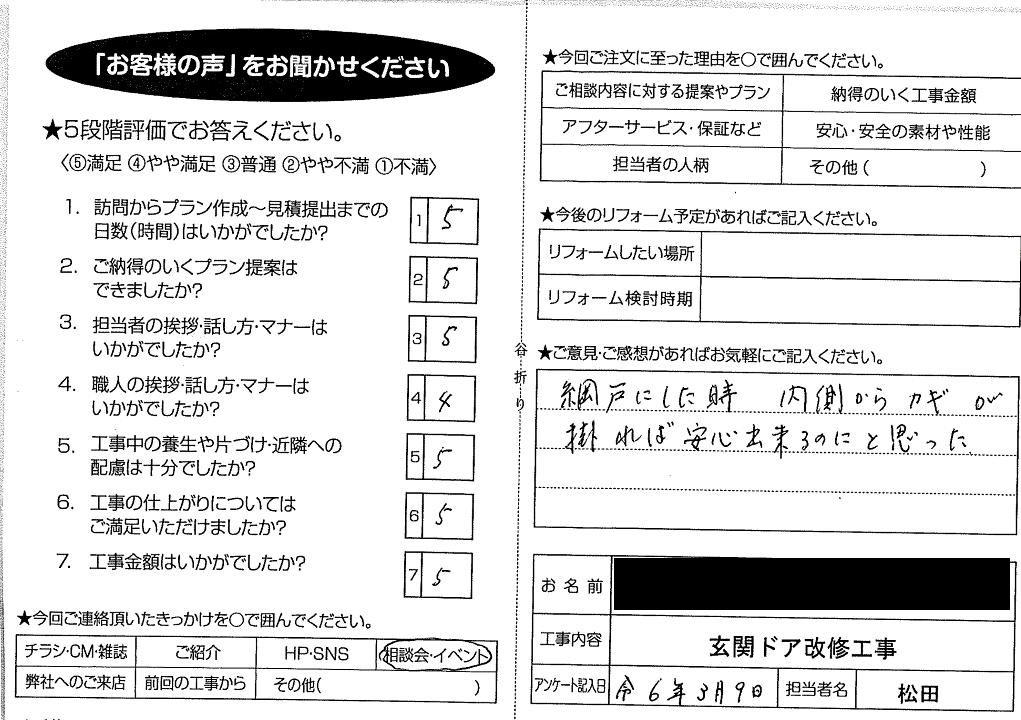 「お客様の声」をお聞かせください
★5段階評価でお答えください。
〈⑤満足 ④やや満足 ③普通 ②やや不満 ①不満〉
1. 訪問からプラン作成～見積提出までの
日数(時間)はいかがでしたか?
1 5
2. ご納得のいくプラン提案は
できましたか?
2 5
3. 担当者の挨拶・話し方・マナーは
いかがでしたか?
3 5
4. 職人の挨拶・話し方・マナーは
いかがでしたか?
4 4
5. 工事中の養生や片づけ・近隣への
配慮は十分でしたか?
5 5
6. 工事の仕上がりについては
ご満足いただけましたか?
6 5
7. 工事金額はいかがでしたか?
7 5
★今回ご連絡頂いたきっかけを○で囲んでください。
チラシ・CM・雑誌 ご紹介 HP・SNS 相談会・イベント
弊社へのご来店 前回の工事から その他( )
谷折り
★今回ご注文に至った理由を○で囲んでください。
ご相談内容に対する提案やプラン 納得のいく工事金額
アフターサービス・保証など 安心・安全の素材や性能
担当者の人柄 その他( )
★今後のリフォーム予定があればご記入ください。
リフォームしたい場所
リフォーム検討時期
★ご意見・ご感想があればお気軽にご記入ください。
網戸にした時 内側からカギが
掛ればば安心出来るのにと思った
お名前
工事内容 玄関ドア改修工事
アンケート記入日 令6年3月9日 担当者名 松田